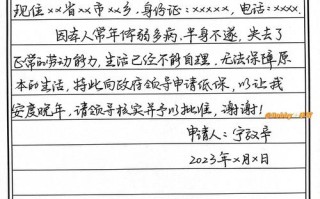 现住××省××市××乡，身份证：×××××，电话：××××.
因本人常年体弱多病，半身不遂，失去了
正常的劳动能力，生活已经不能自理，无法保障原
本的生活，特此向政府领导申请低保，以让我
安度晚年，请领导核实并予以批准，谢谢！
申请人：宁致平
2023年×月×日